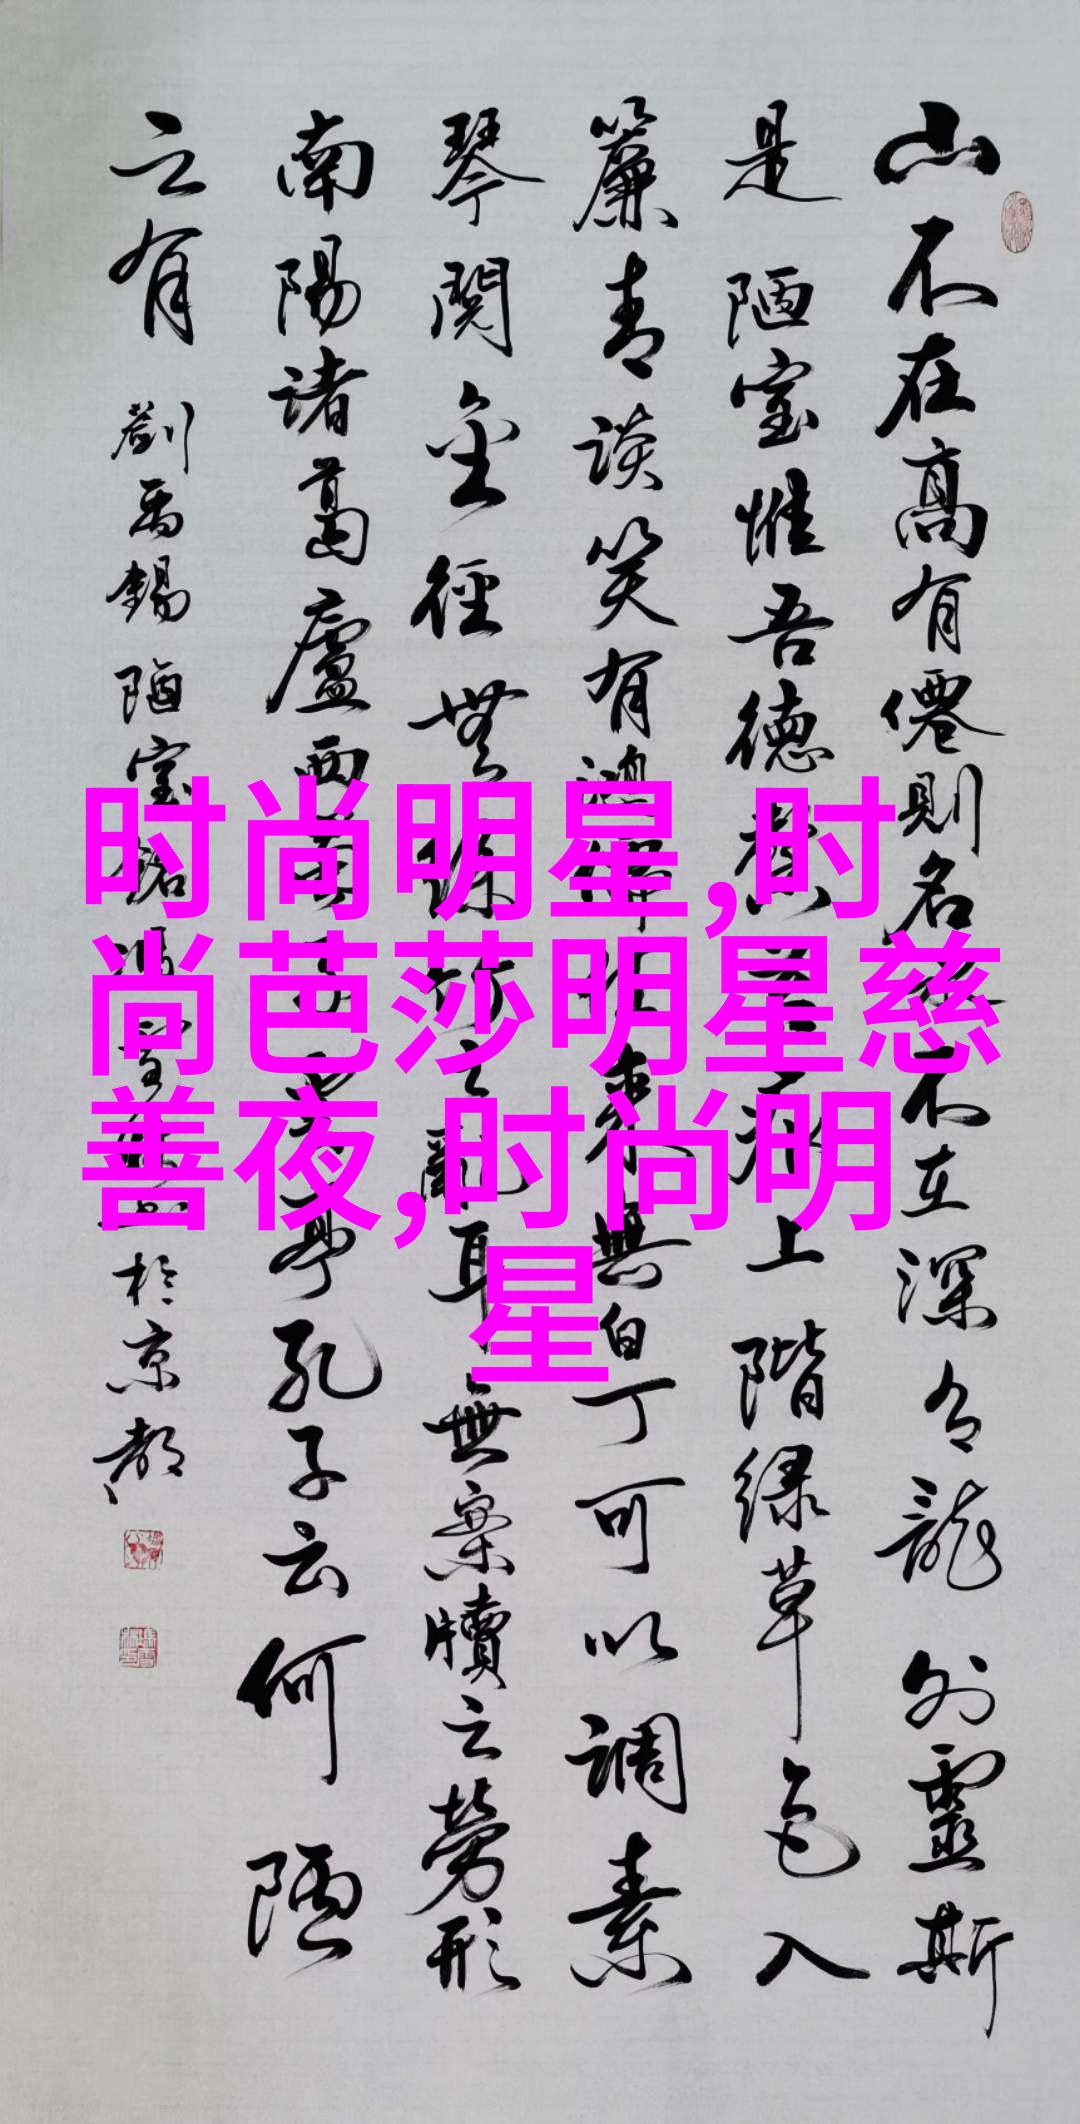 时尚明星,时
尚芭莎明星慈
善夜,时尚明
星
山不在高有僊則名水不在深有龍则靈斯
是陋室惟吾德馨苔痕上階绿草色入
簾青談笑有鴻儒往来無白丁可以调素
琴閱金徑無絲竹之亂耳無案牘之勞形
南陽诸葛廬西蜀子雲亭孔子云何陋
之有 劉禹錫陋室銘 於京都